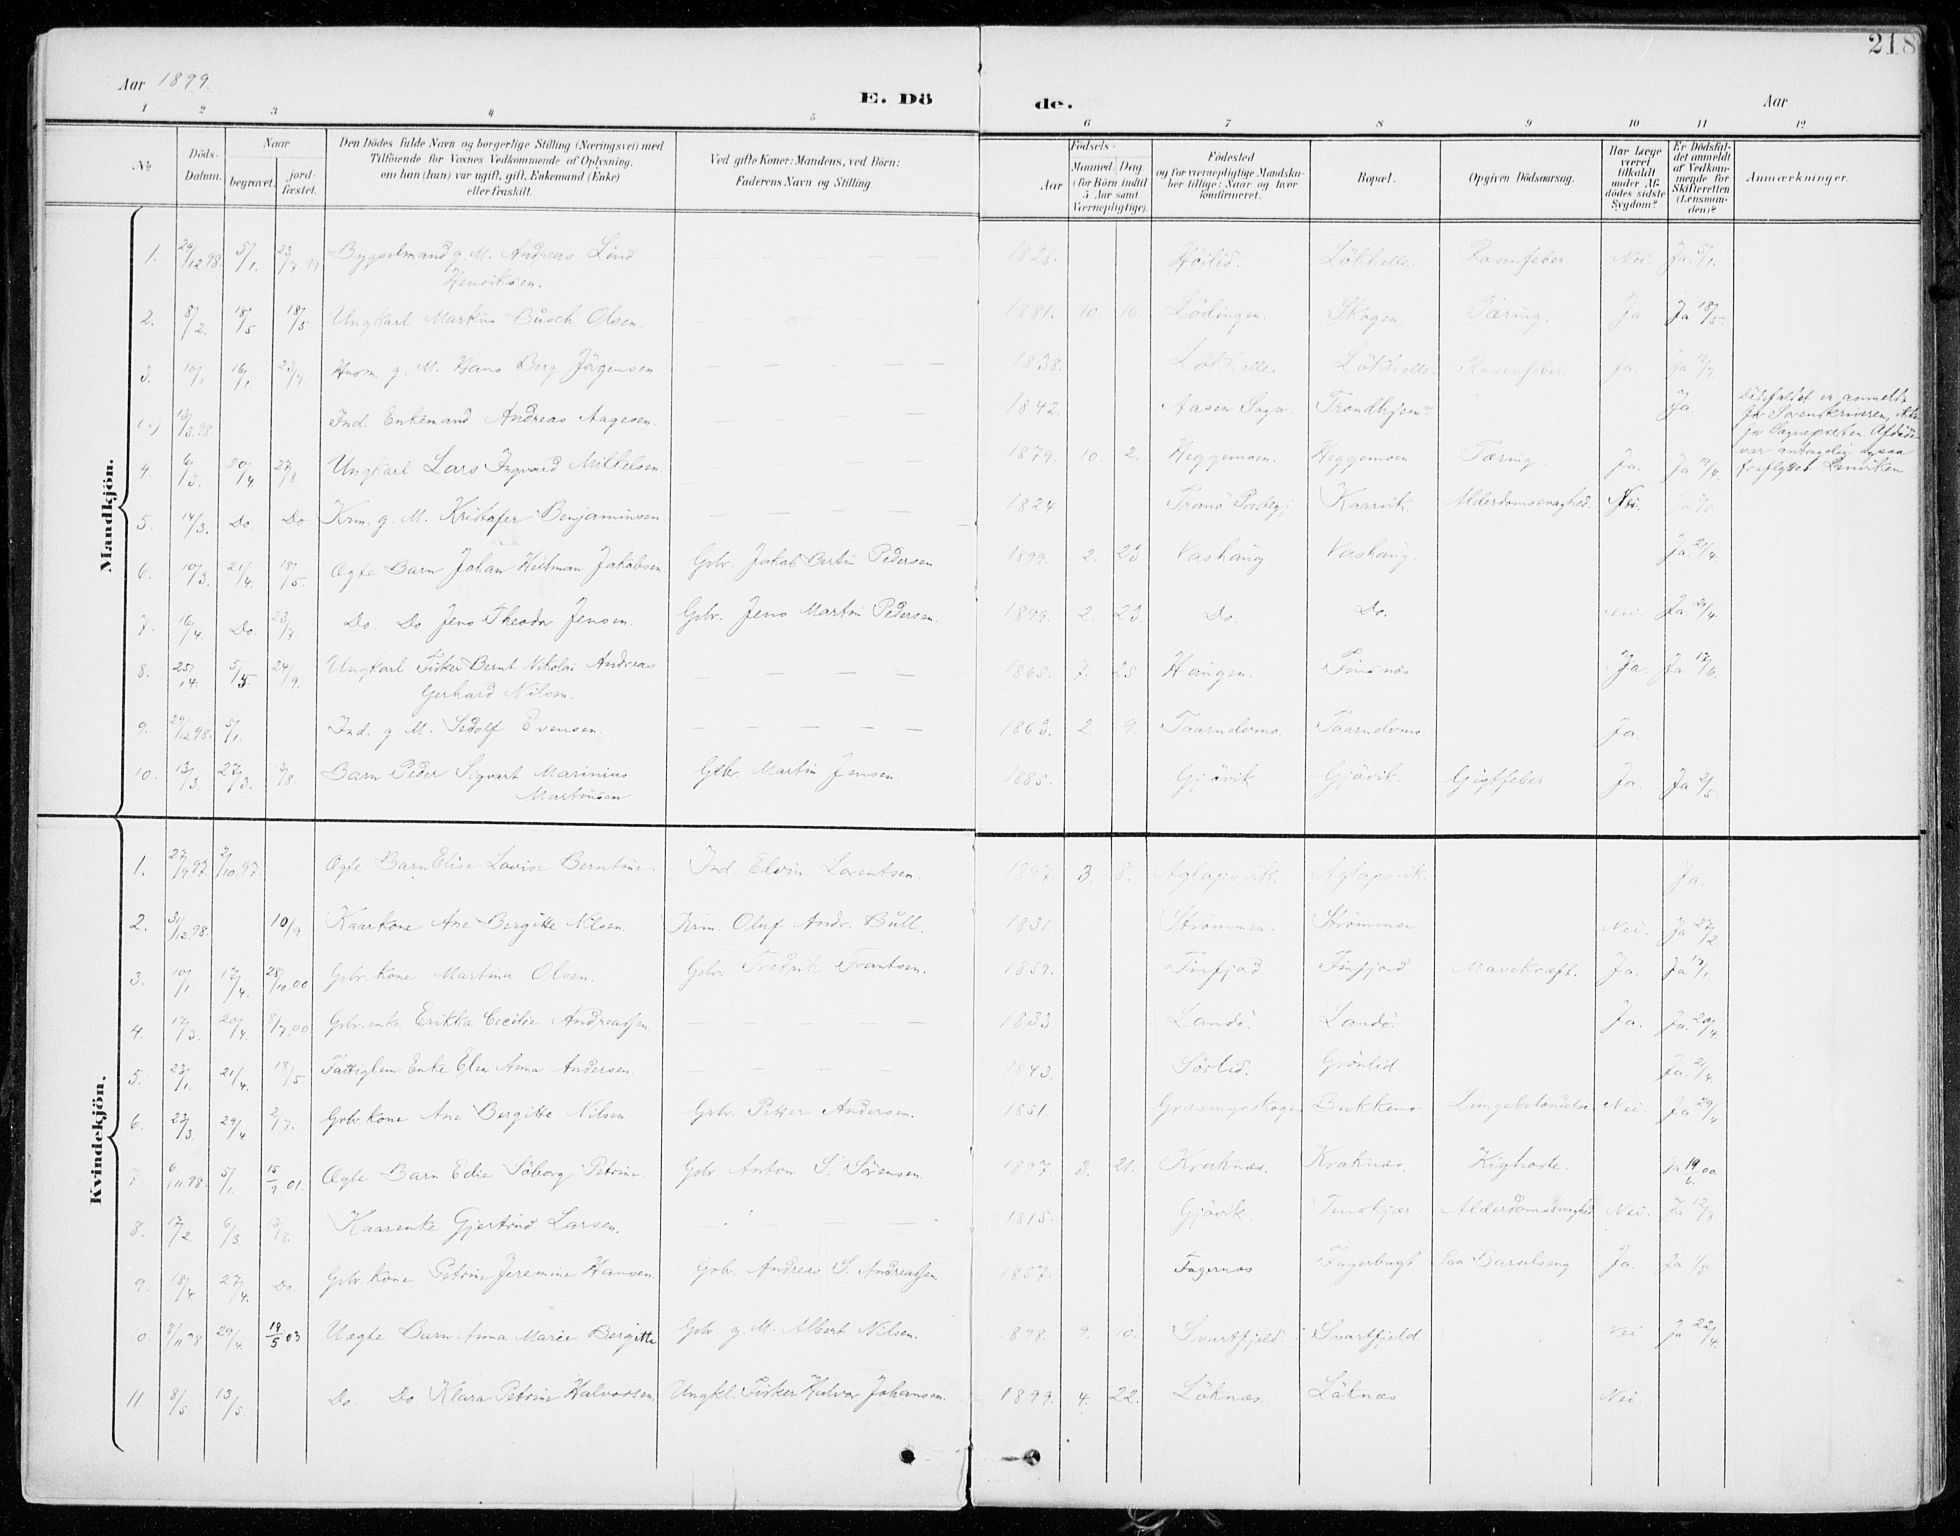 218
Aar 1899.
E. Dö de.
Aar
1 2 3 4 5 6 7 8 9 10 11 12
No
Döds-Datum.
Naar
begravet.
jord-fæstet.
Den Dödes fulde Navn og borgerlige Stilling (Næringsvei) med
Tilföiende for Voxnes Vedkommende af Oplysning,
om han (hun) var ugift, gift, Enkemand (Enke)
eller fraskilt.
Ved gifte Koner: Mandens, ved Börn:
Faderens Navn og Stilling
Födsels-
Aar
Maaned. Dag.
(for Börn indtil
5 Aar samt
Værnepligtige).
Födested
og for værnepligtige Mandska-
ber tillige: Naar og hvor
konfirmeret.
Bopæl.
Opgiven Dödsaarsag.
Har Læge
været
tilkaldt
under Af-
dödes sidste
Sygdom?
Er Dödsfal-
det anmeldt
af Vedkom-
mende for
Skifteretten
(Lensman-
den)?
Anmærkninger.
Mandkjön.
1. 29/12 98. 5/1. Bygselmand g. M. Andreas Lind Henriksen. 1828. Höilid. Lökhelle. Rosenfeber. Nei. Ja 5/1.
2. 8/2. 18/5. 18/5. Ungkarl Markus Busch Olsen. 1881. 10. 16. Lödingen. Skogen. Tæring. Ja. Ja 18/5.
3. 10/1. 16/1. 23/7. Husm. g. M. Hans Berg Jörgensen. 1838. Lökhelle. Lökhelle. Rosenfeber. Ja.
13/3 98. Ind. Enkemand Andreas Aagesen. 1842. Aasen Sogn. Trondhjem Ja.
Dödsfaldet er anmeldt
4 6/3. 20/4 27/8. Ungkarl Lars Ingvard Mikkelsen. 1879. 10. 2. Heggemoen. Heggemoen. Tæring. Ja. Ja 19/4.
fraflyttet Lenviken
5. 14/3. Do. Do Krm. g. M. Kristofer Benjaminsen 1824 Tranö Prstegj. Kaarvik. Alderdomssvaghed. Nei.
6. 10/3. 21/4. 18/5. Ægte Barn Johan Heitman Jakobsen Gbr. Jakob Bertin Pedersen 1899. 2. 23. Vashaug. Vashaug. Ja 21/4.
7. 16/4. Do. 23/7. Do. Do Jens Theodor Jensen. Gbr. Jens Martin Pedersen. 1899. 2. 23. Do. Do. Nei. Ja 21/4.
8. 25/4. 5/5. 24/9. Ungkarl Fisker Bernt Nikolai Andreas Gerhard Nilsen. 1865. 7. 25. Haugen. Finsnæs Ja. Ja 17/6.
9. 29/12 98. 5/1. Ind. g. M. Sedolf Evensen. 1863. 2. 9. Taarnelvmo. Taarnelvmo. Ja.
10. 13/3. 27/3. 13/8. Barn Peder Sigvart Marinius Martinsen. Gbr. Martin Jensen. 1885. Gjövik Gjövik. Gigtfeber. Ja. Ja 2/5.
Kvindekjön.
1. 27/9 97 2/10 97. Ægte Barn Elise Lovise Berntine. Ind. Edvin Lorentsen. 1897. 3. 8. Aglapsvik. Aglapsvik. Ja.
2. 31/12 98. 10/9 Kaarkone Ane Bergitte Nilsen. Krm. Oluf Andr. Bull. 1831. Strömmen. Strömmen Nei. Ja 27/2.
3. 10/1. 17/4. 28/10 00 Gbr. kone Martina Olsen. Gbr. Fredrik Frantsen. 1859. Finfjord Finfjord. Mavekræft. Ja. Ja 17/1
4. 17/3. 20/4 8/7 00 Gbr. enke Erikka Cecilie Andreassen. 1833 Landö. Landö. Ja. Ja. 20/4.
5. 23/1. 21/4. 18/5. Fattiglem Enke Elen Anna Andersen. 1843. Sörlid. Grönlid. Ja 21/4.
6. 23/3. 29/4 2/7. Gbr kone Ane Bergitte Nilsen Gbr. Petter Andersen. 1851. Græsmyrskogen Bukkemo. Lungebetændelse Nei. Ja 29/4
7. 6/11 98. 5/1. 15/7 01. Ægte Barn Edie Söborg Petrine. Gbr Anton S. Sörensen. 1897. 3. 21. Kraknæs. Kraknæs. Kighoste. Ja 19/6 00
8. 17/2 6/3 13/8. Kaarenke Gjertrud Larsen. 1815. Gjövik. Tenskjær. Alderdomssvaghed Nei. Ja 12/8
9. 18/4 27/4. Do. Gbr. Kone Petrine Jeremine Hansen. Gbr. Andreas S. Andreassen 1857. Fagernæs Fagerbugt Saa Barselseng Ja. Ja 1/5
0. 8/11 98. 29/4. 19/5 03 Uægte Barn Anna Marie Bergitte Gbr g. M. Albert Nilsen. 898. 9. 10. Svartfjeld. Svartfjeld Nei Ja 22/4.
11. 8/5. 13/5. Do. Do Klara Petrine Halvorsen. Ungkl. Fisker Halvor Johansen. 1899. 4. 22. Löknæs. Löknæs Nei.